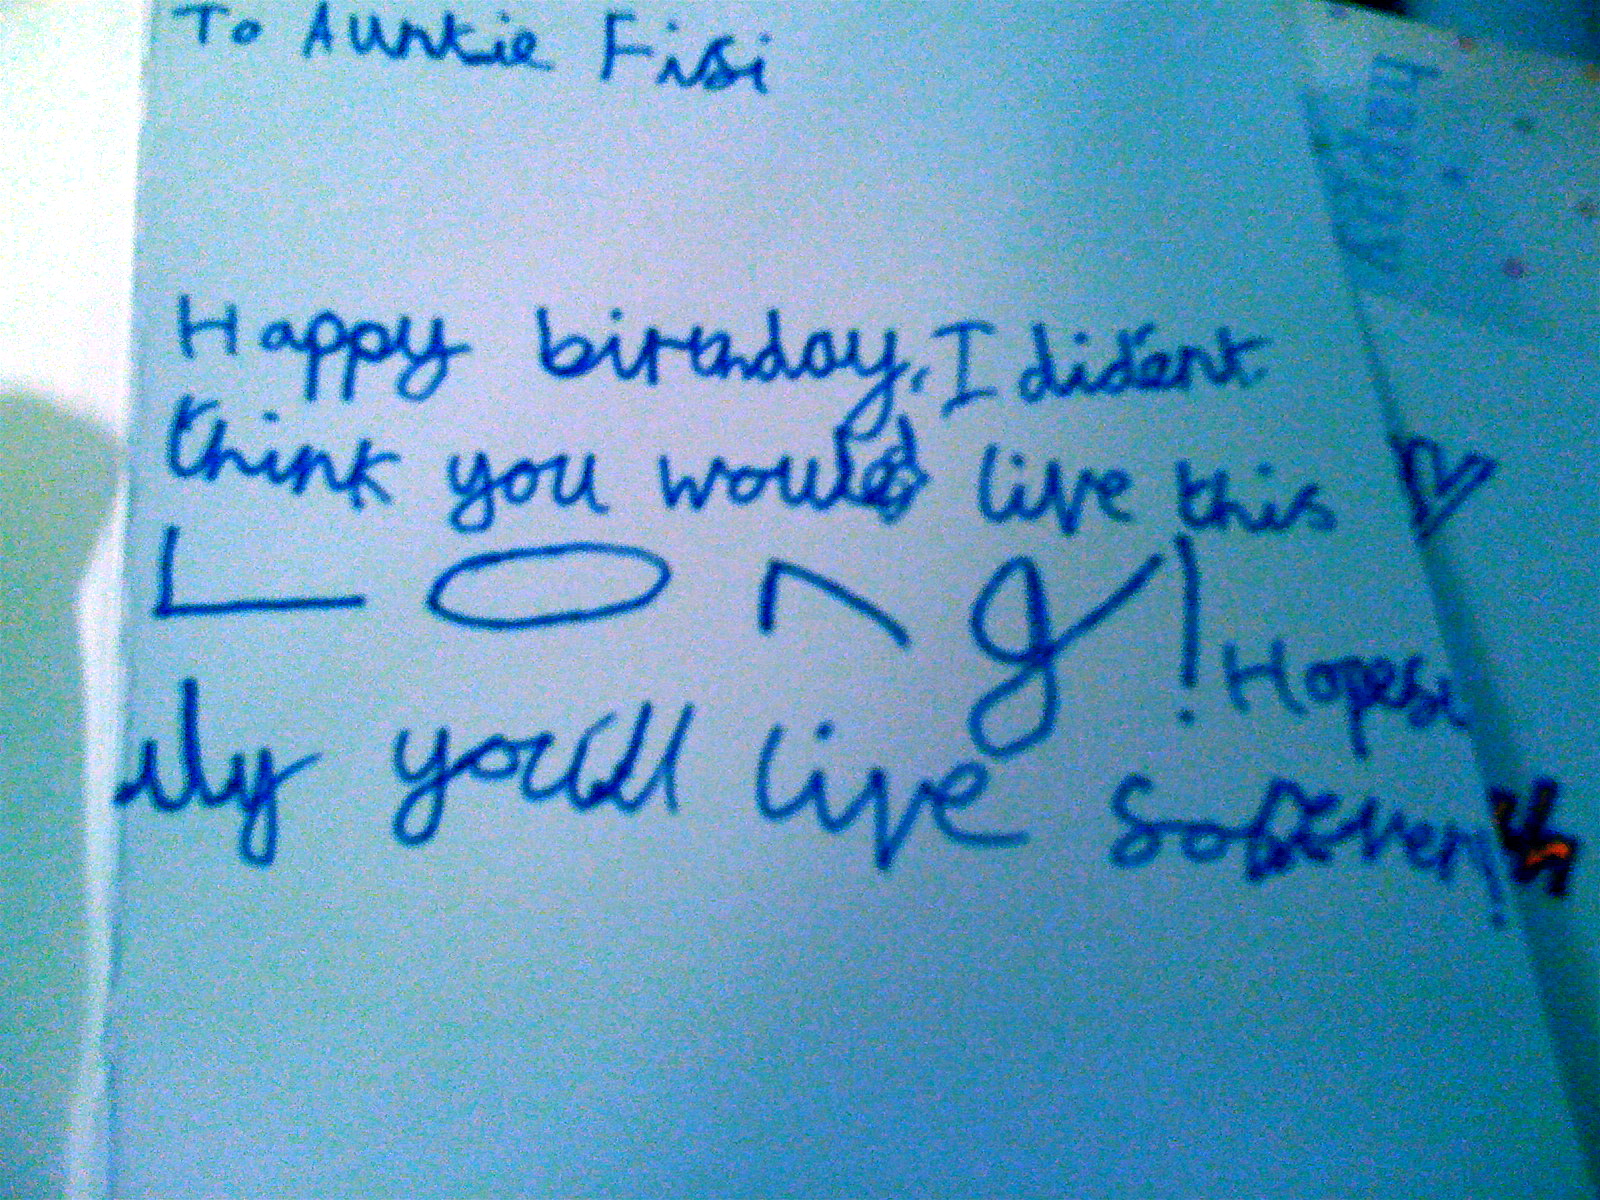 To Auntie Fifi
Happy birthday, I dident
think you would live this
LONg! Hopefu
lly you'll live forever!
happy